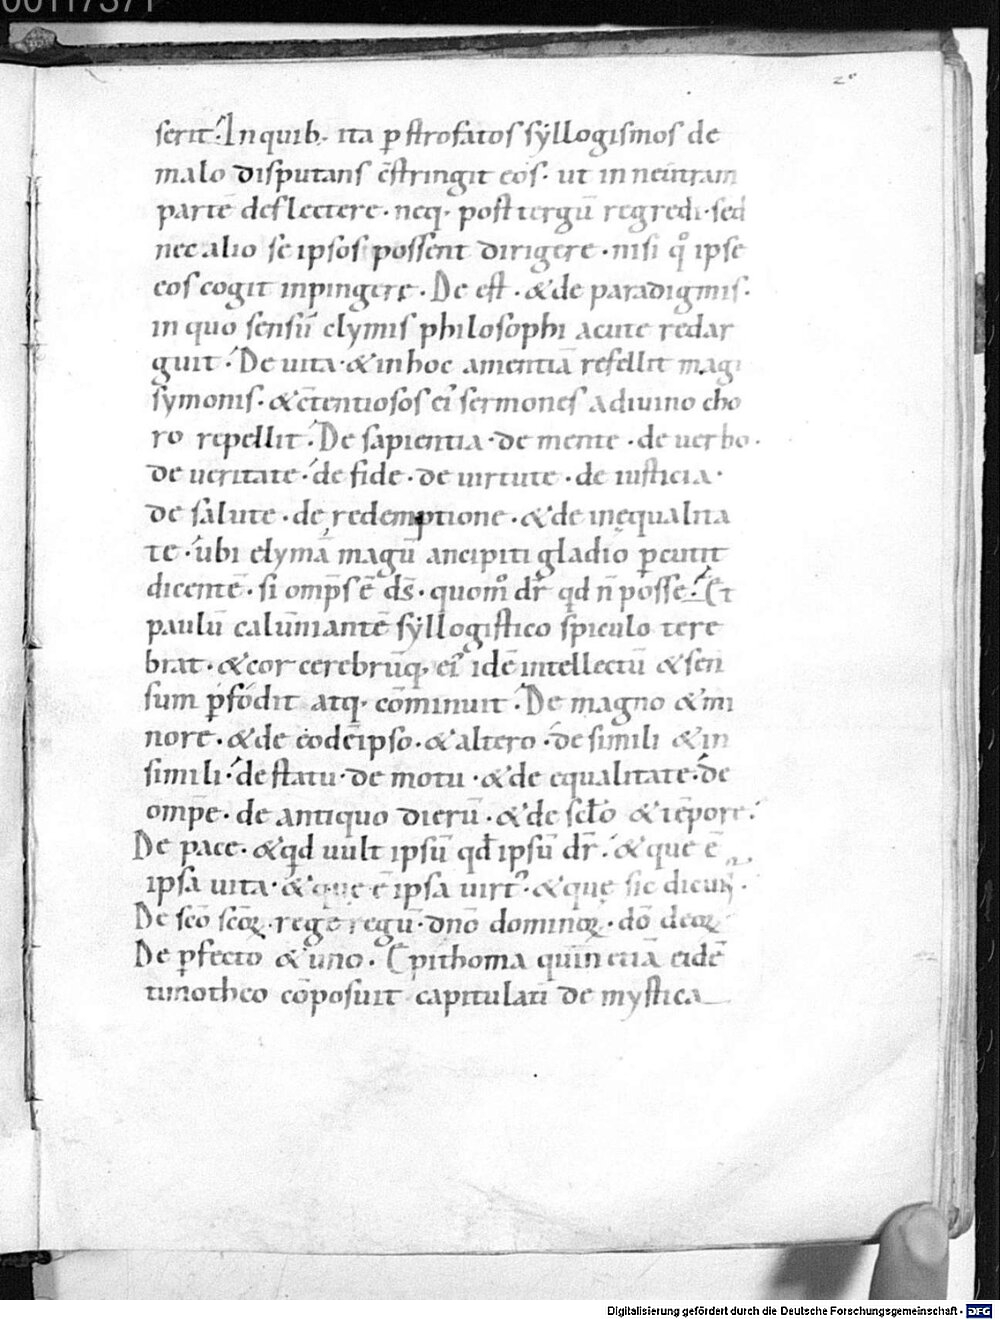 00117371
2º
serit. In quib. ita p̲ strofatos syllogismos de
malo disputans c̄stringit eos. ut in neutram
partē deflectere. neq. post tergū regredi. sed
nec alio se ipsos possent dirigere. nisi qͦ ipse
eos cogit inpingere. De est. &de paradigmis.
in quo sensū elymis philosophi acute redar
guit. De uita. &inhoc amentiā refellit magi
symonis. &c̄tentiosos ei᾽ sermones adiuino cho
ro repellit. De sapientia. de mente. de uerbo.
de ueritate. de fide. de uirtute. de iusticia.
de salute. de redemptione. &de inęqualita
te. ubi elymā magū ancipiti gladio p̲cutit
dicentē. si omp̄s ē d̄s. quomͦ dr̄ qd n̄ posse. Et
paulū calūmiantē syllogistico spiculo tere
brat. &cor cerebrūq. ei᾽ idē intellectū &sen
sum p̲fōdit atq. cōminuit. De magno &mi
nore. &de eodē ipso. &altero. de simili &in
simili. de statu. de motu. &de equalitate. de
omp̄e. de antiquo dierū. &de sc̄lo &tēpore.
De pace. &qd uult ipsū qd ipsū dr̄. &que ē
ipsa uita. &que ē ipsa uirt᾽. &quę sic dicunt᾽.
De scō scōꝝ. rege regū. dnō dominoꝝ. dō deoꝝ
De p̲fecto &uno. Epithoma quin etiā eidē
timotheo cōposuit capitulatī de mystica
Digitalisierung gefördert durch die Deutsche Forschungsgemeinschaft - DFG